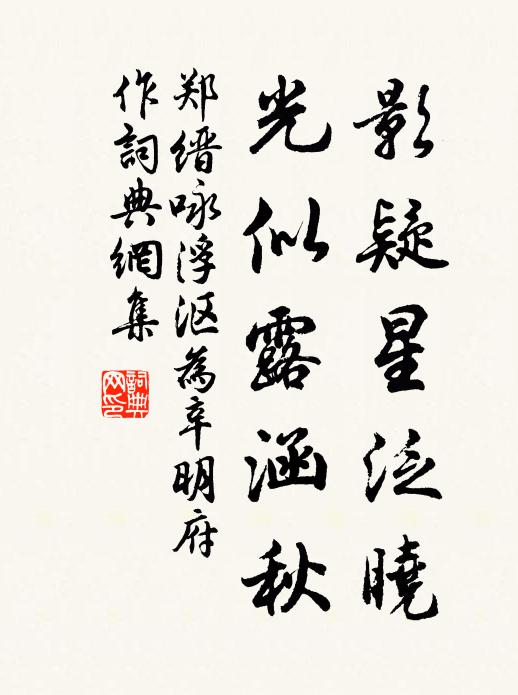 影疑星泛曉
光似露涵秋
郑缙咏浮沤為辛明府
作詞典網集
詞典网印